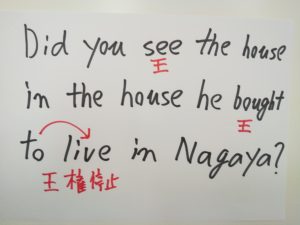 Did you see the house
王
in the house he bought
王
to live in Nagaya?
王権停止